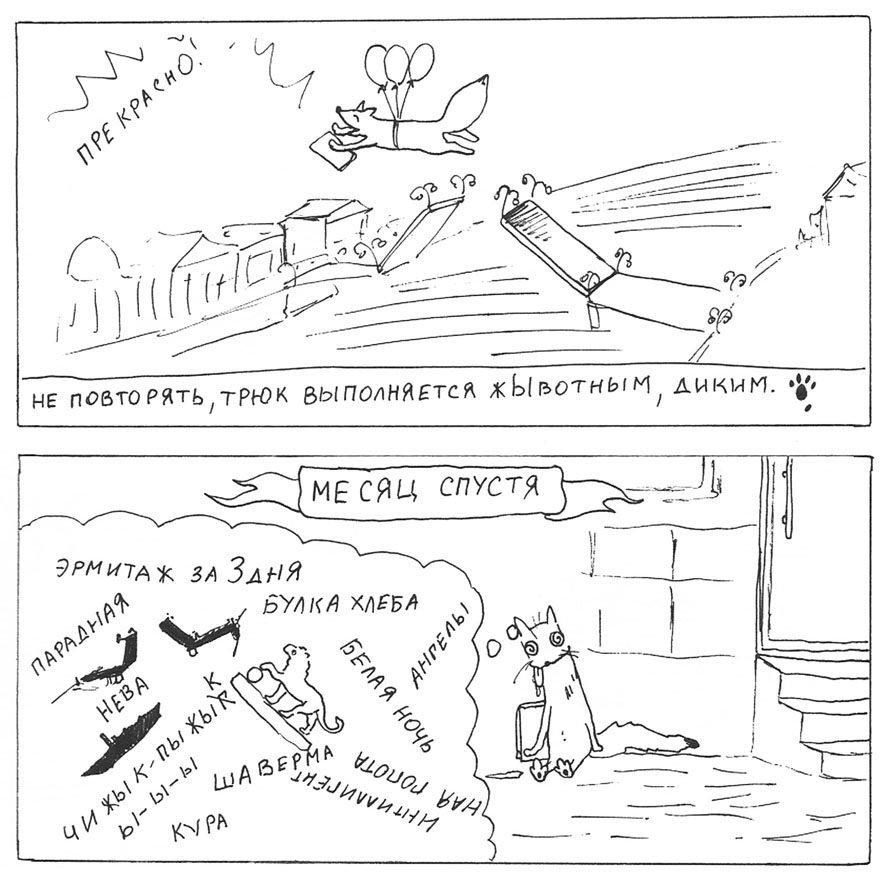 ПРЕКРАСНО!
НЕ ПОВТОРЯТЬ, ТРЮК ВЫПОЛНЯЕТСЯ ЖЫВОТНЫМ, ДИКИМ.
МЕСЯЦ СПУСТЯ
ЭРМИТАЖ ЗА 3 ДНЯ
ПАРАДНАЯ
БУЛКА ХЛЕБА
АНГЕЛЫ
БЕЛАЯ НОЧЬ
НЕВА
ЧИЖЫК-ПЫЖЫК
Ы-Ы-Ы
ШАВЕРМА
КУРА
ИНТИЛЛИГЕНТ
НАЯ ГОПОТА